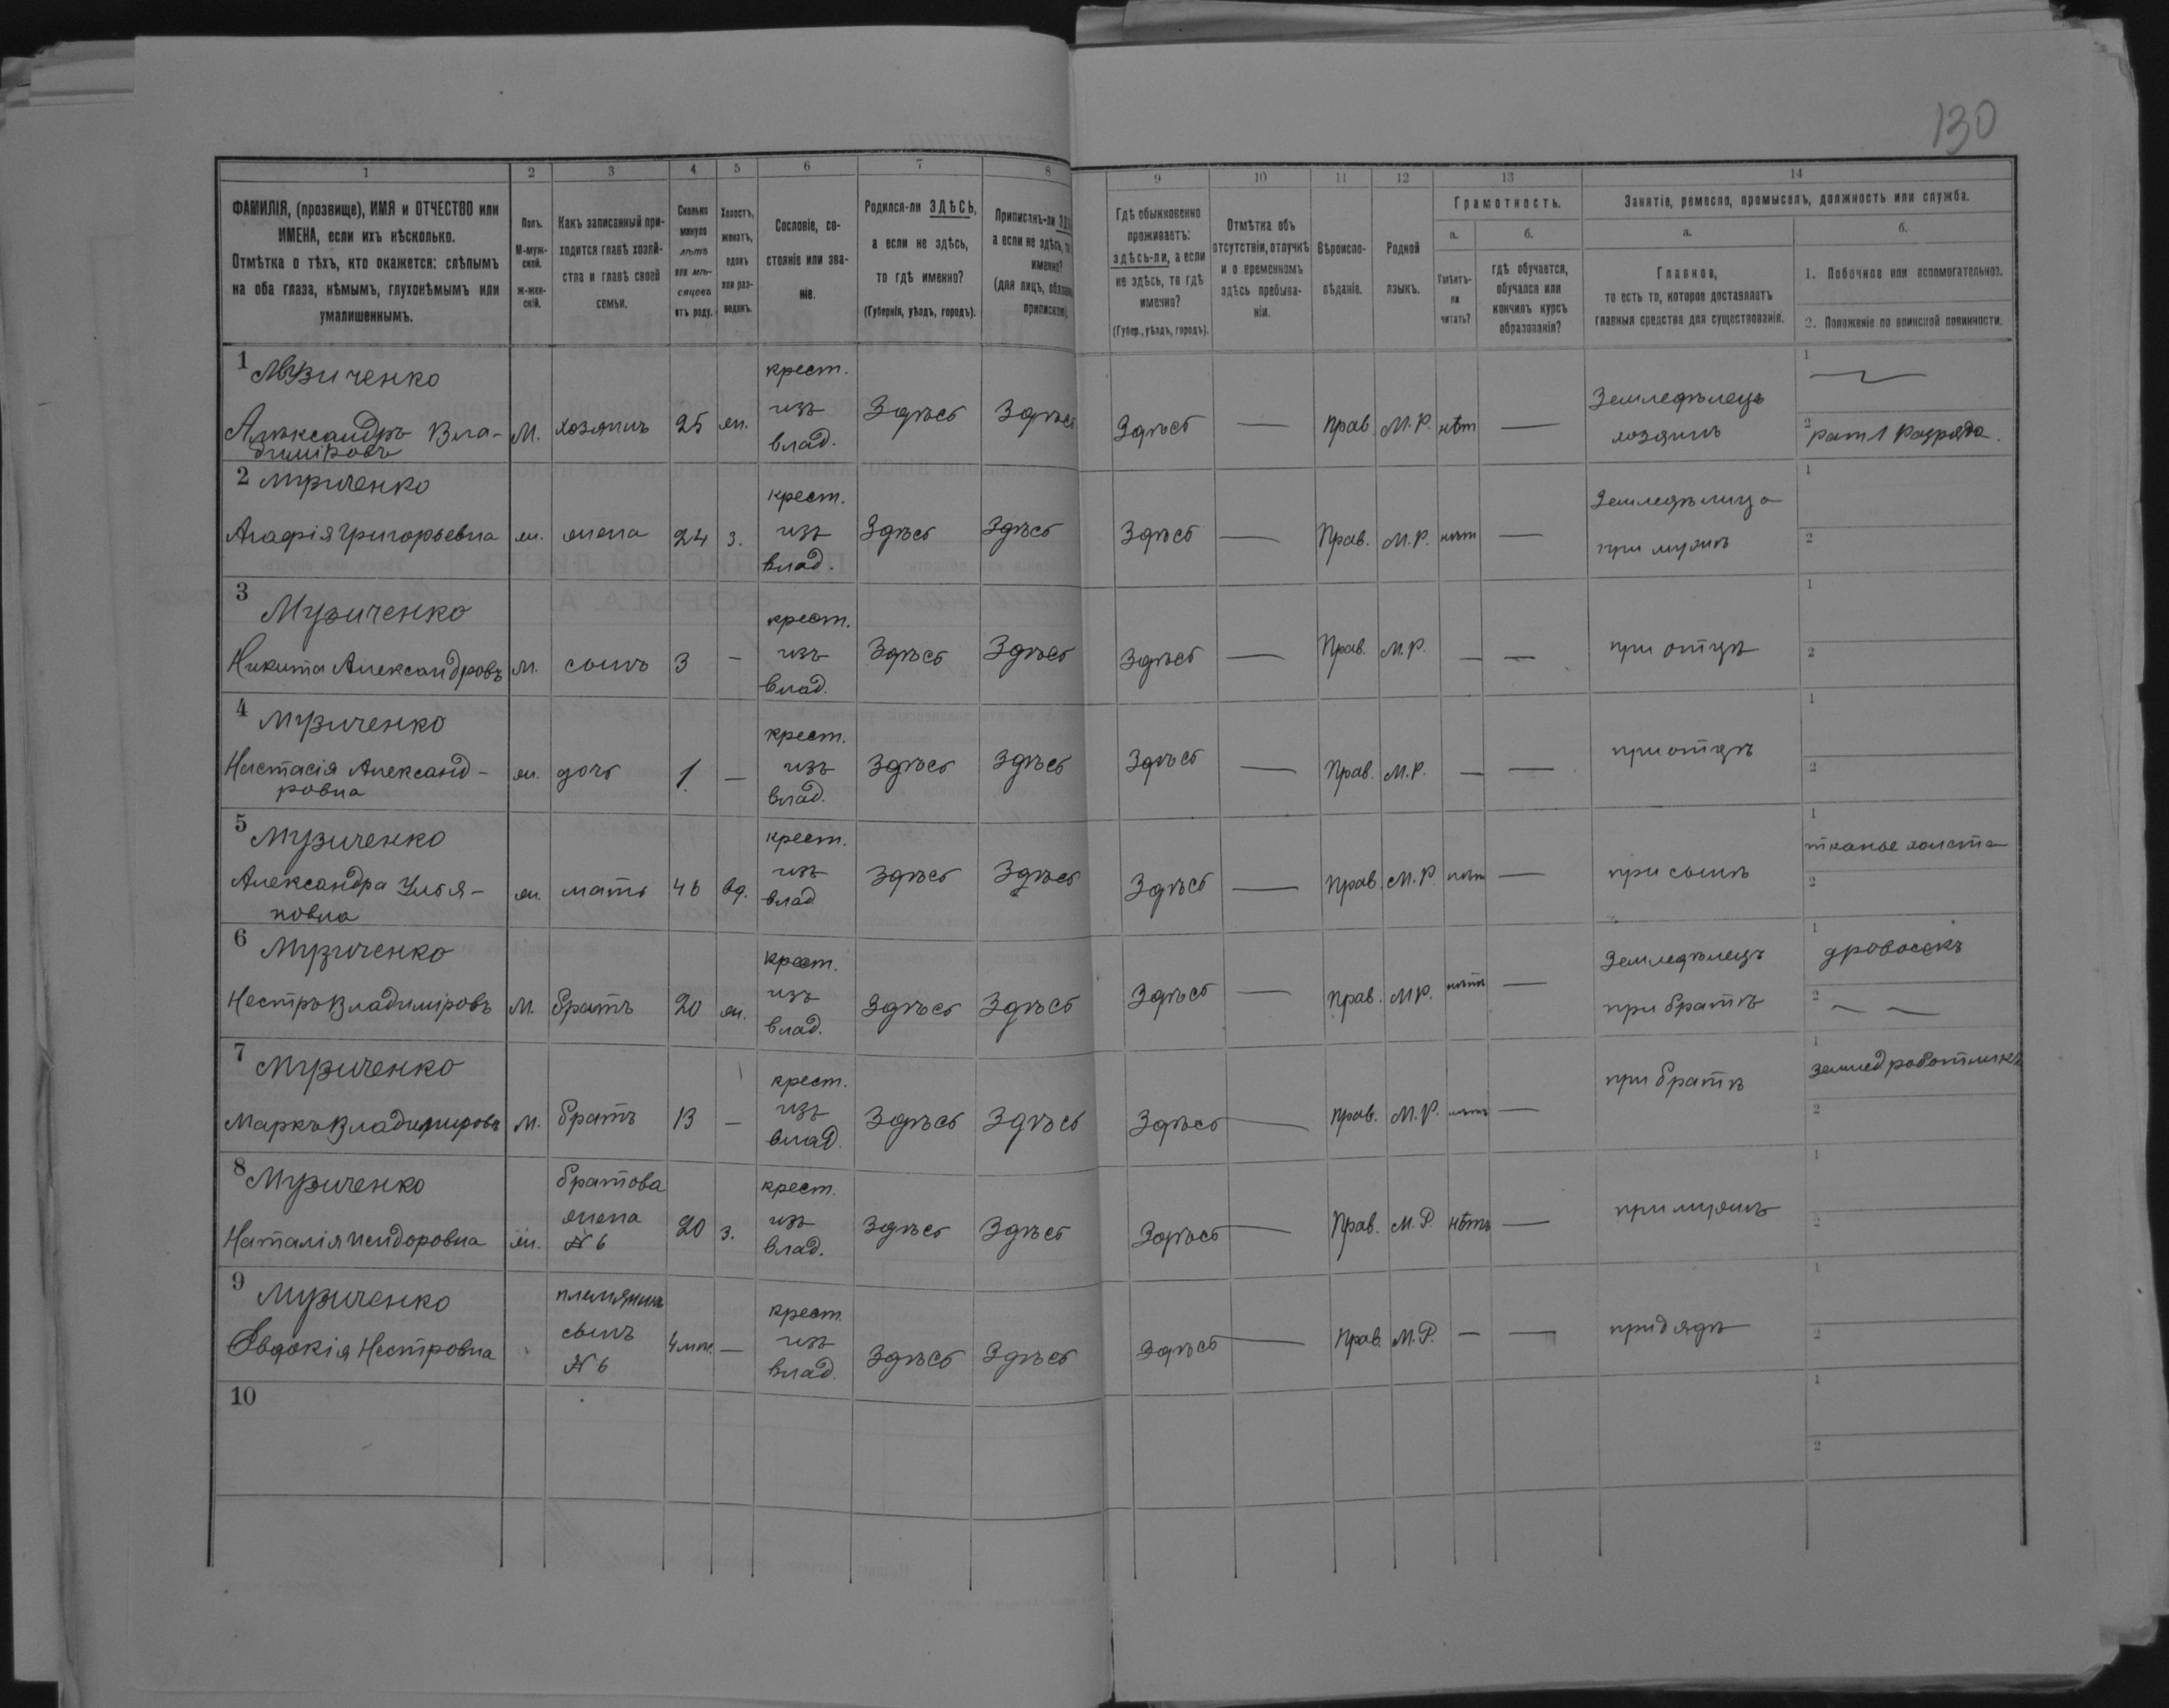 130
1 2 3 4 5 6 7 8 9 10 11 12 13 14
ФАМИЛІЯ, (прозвище), ИМЯ и ОТЧЕСТВО или
ИМЕНА, если ихъ нѣсколько.
Отмѣтка о тѣхъ, кто окажется: слѣпымъ
на оба глаза, нѣмымъ, глухонѣмымъ или
умалишеннымъ.
Полъ.
М-муж-
ской.
ж-жен-
скій.
Какъ записанный при-
ходится главѣ хозяй-
ства и главѣ своей
семьи.
Сколько
минуло
лѣтъ
или мѣ-
сяцевъ
отъ роду.
Холостъ,
женатъ,
вдовъ
или раз-
веденъ.
Сословіе, со-
стояніе или зва-
ніе.
Родился-ли ЗДѢСЬ,
а если не здѣсь,
то гдѣ именно?
(Губернія, уѣздъ, городъ).
Приписанъ-ли
а если не здѣсь,
именно?
(для лицъ,
Гдѣ обыкновенно
проживаетъ:
здѣсь-ли, а если
не здѣсь, то гдѣ
именно?
(Губер., уѣздъ, городъ).
Отмѣтка объ
отсутствіи, отлучкѣ
и о временномъ
здѣсь пребыва-
ніи.
Вѣроиспо-
вѣданіе.
Родной
языкъ.
Грамотность.
а.
Умѣетъ-
ли
читать?
б.
гдѣ обучается,
обучался или
кончилъ курсъ
образованія?
Занятіе, ремесло, промыселъ, должность или служба.
а.
Главное,
то есть то, которое доставляетъ
главныя средства для существованія.
б.
1. Побочное или вспомогательное.
2. Положеніе по воинской повинности.
1 Музиченко
Александръ Вла-
диміровъ
М. хозяинъ 25 ж.
крест.
изъ
влад.
Здѣсь Здѣсь Здѣсь — Прав. М.Р. нѣт —
Земледѣлецъ
хозяинъ
1 —
2 рат 1 разряда.
2 Музиченко
Агафія Григорьевна ж. жена 24 з.
крест.
изъ
влад.
Здѣсь Здѣсь Здѣсь — Прав. М.Р. нѣт —
Земледѣлица
при мужѣ
1
2
3 Музиченко
Никита Александровъ М. сынъ 3 —
крест.
изъ
влад.
Здѣсь Здѣсь Здѣсь — Прав. М.Р. — —
при отцѣ
1
2
4 Музиченко
Настасія Александ-
ровна
ж. дочь 1. —
крест.
изъ
влад.
Здѣсь Здѣсь Здѣсь — Прав. М.Р. — —
при отцѣ
1
2
5 Музиченко
Александра Улья-
новна
ж. мать 46 вд.
крест.
изъ
влад
Здѣсь Здѣсь Здѣсь — Прав. М.Р. нѣт —
при сынѣ
1 тканье холста
2
6 Музиченко
Нестръ Владиміровъ М. братъ 20 ж.
крест.
изъ
влад.
Здѣсь Здѣсь Здѣсь — Прав. М.Р. нѣтъ —
Земледѣлецъ
при братѣ
1 дровосекъ
2 — —
7 Музиченко
Маркъ Владимировъ М. братъ 13 —
крест.
изъ
влад.
Здѣсь Здѣсь Здѣсь — Прав. М.Р. нѣтъ —
при братѣ
1 землед работникъ
2
8 Музиченко
Наталія Исидоровна ж.
братова
жена
№ 6
20 з.
крест.
изъ
влад.
Здѣсь Здѣсь Здѣсь — Прав. М.Р. нѣтъ —
при мужѣ
1
2
9 Музиченко
Евдокія Нестровна
сынъ
№ 6
4 —
крест
изъ
влад.
Здѣсь Здѣсь Здѣсь — Прав. М.Р. — —
при дядѣ
1
2
10
1
2